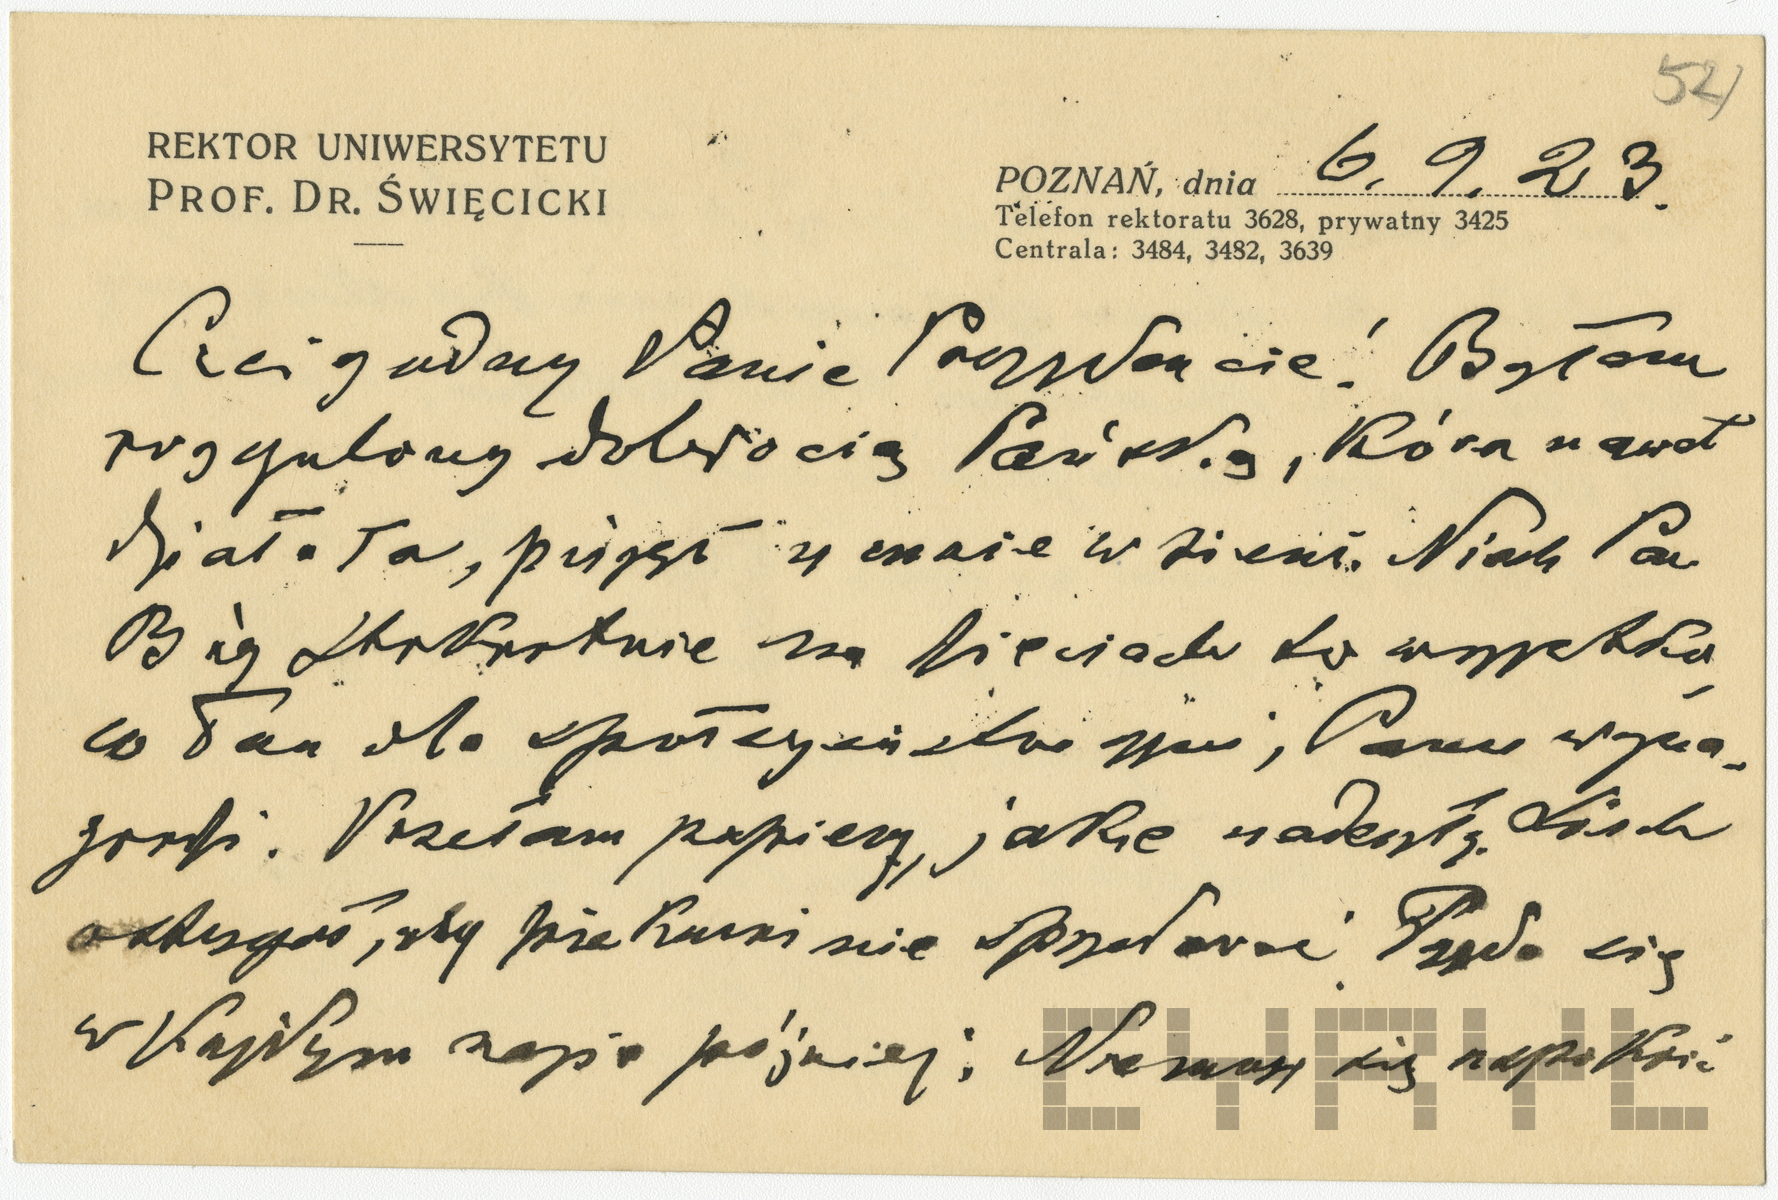 52/
REKTOR UNIWERSYTETU
PROF. DR. ŚWIĘCICKI
POZNAŃ, dnia 6. 9. 23.
Telefon rektoratu 3628, prywatny 3425
Centrala: 3484, 3482, 3639
Czcigodny Panie Prezydencie! Byłem
rozczulony dobrocią Pańską, która nawet
działała, w mnie w ziemi. Niech Pan
Bóg stokrotnie za to wszystko,
co Pan dla społeczeństwa czyni, Panu wyna-
grodzi. Posełam papiery, jakie nadeszły.
nie sprzedawać. Przyda się
w każdym razie później.
CYRYL